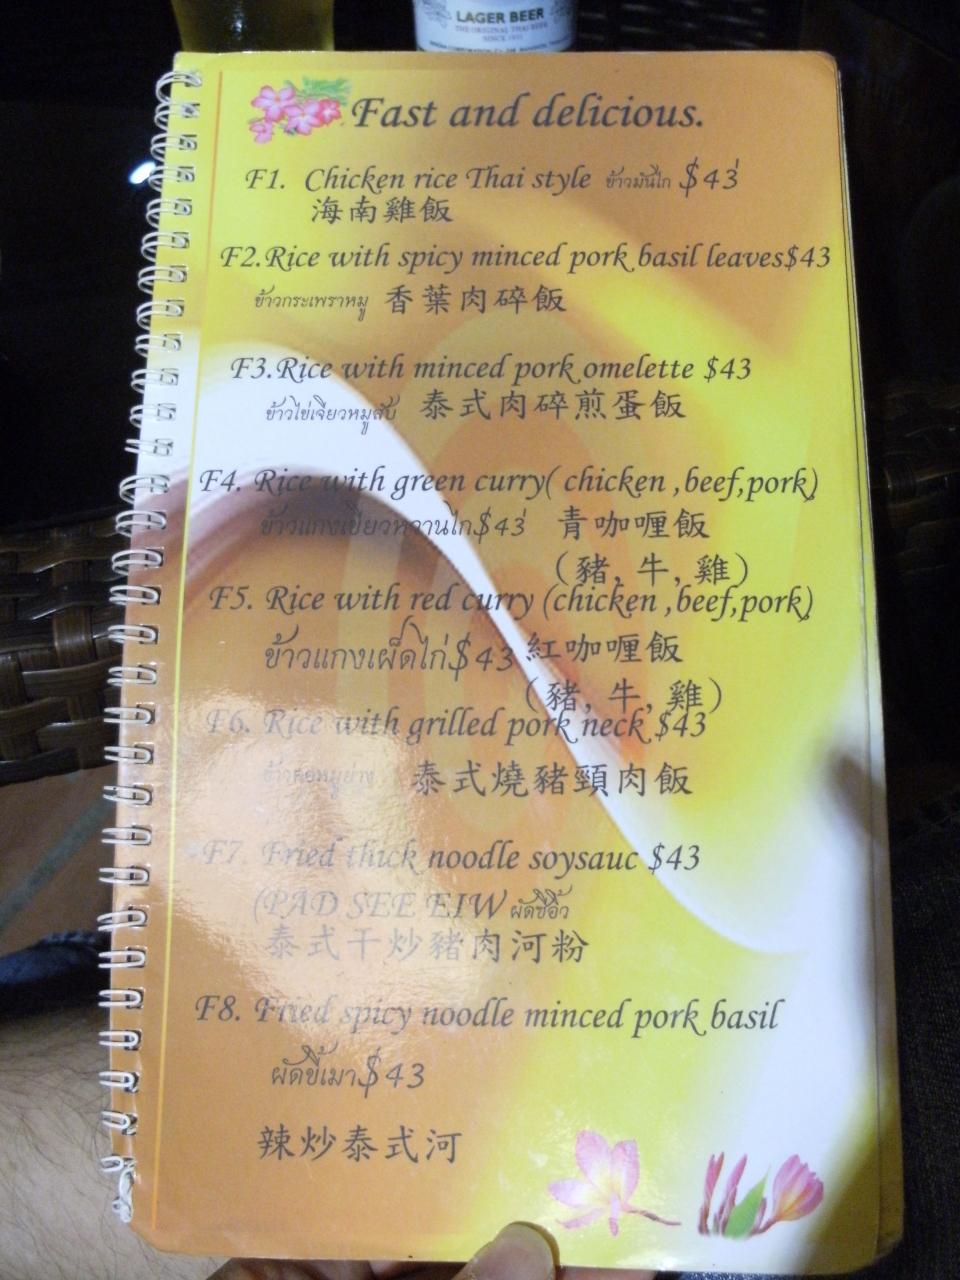 LAGER BEER
THE ORIGINAL THAI BEER
SINCE 1933
Fast and delicious.
F1. Chicken rice Thai style ข้าวมันไก่ $43
海南雞飯
F2.Rice with spicy minced pork basil leaves$43
ข้าวกระเพราหมู 香葉肉碎飯
F3.Rice with minced pork omelette $43
ข้าวไข่เจียวหมูสับ 泰式肉碎煎蛋飯
F4. Rice with green curry( chicken ,beef,pork)
ข้าวแกงเขียวหวานไก่$43 青咖喱飯
(豬, 牛, 雞)
F5. Rice with red curry (chicken ,beef,pork)
ข้าวแกงเผ็ดไก่$43 紅咖喱飯
(豬, 牛, 雞)
F6. Rice with grilled pork neck $43
ข้าวคอหมูย่าง 泰式燒豬頸肉飯
F7. Fried thick noodle soysauc $43
(PAD SEE EIW ผัดซีอิ้ว
泰式干炒豬肉河粉
F8. Fried spicy noodle minced pork basil
ผัดขี้เมา$43
辣炒泰式河